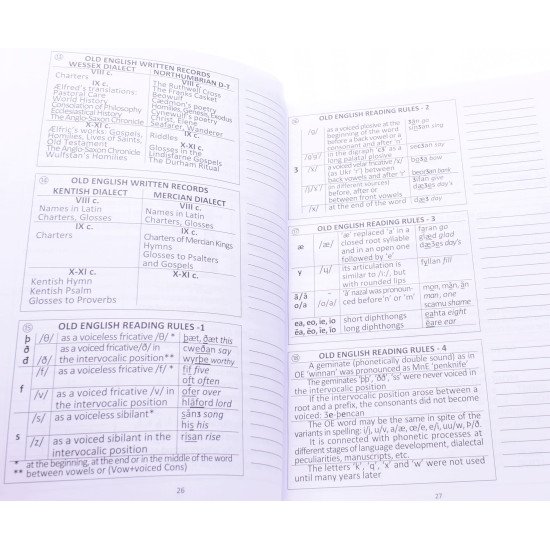 13
OLD ENGLISH WRITTEN RECORDS
WESSEX DIALECT
NORTHUMBRIAN D-T
VIII c.
Charters
IX c.
Ælfred's translations:
Pastoral Care
World History
Consolation of Philosophy
Ecclesiastical History
The Anglo-Saxon Chronicle
X-XI c.
Ælfric's works: Gospels,
Homilies, Lives of Saints,
Old Testament
The Anglo-Saxon Chronicle
Wulfstan's Homilies
VIII c.
The Ruthwell Cross
The Franks Casket
Beowulf
Cædmon's poetry
Homilies, Genesis, Exodus
Cynewulf's poetry
Christ, Elene
Seafarer, Wanderer
IX c.
Riddles
X-XI c.
Glosses in the
Lindisfarne Gospels
The Durham Ritual
14
OLD ENGLISH WRITTEN RECORDS
KENTISH DIALECT
MERCIAN DIALECT
VIII c.
Names in Latin
Charters, Glosses
IX c.
Charters
X-XI c.
Kentish Hymn
Kentish Psalm
Glosses to Proverbs
VIII c.
Names in Latin
Charters, Glosses
IX c.
Charters of Mercian Kings
Hymns
Glosses to Psalters
and Gospels
X-XI c.
15
OLD ENGLISH READING RULES -1
þ /θ/ as a voiceless fricative /θ/ * þæt, ðæt this
ð as a voiced fricative/ð/ in cweðan say
đ /ð/ the intervocalic position** wyrþe worthy
f /f/ as a voiceless fricative /f/ * fif five
oft often
/v/ as a voiced fricative /v/ in ofer over
the intervocalic position** hlāford lord
s /s/ as a voiceless sibilant* sānʒ song
his his
/z/ as a voiced sibilant in the risan rise
intervocalic position
* at the beginning, at the end or in the middle of the word
** between vowels or (Vow+voiced Cons)
26
16
OLD ENGLISH READING RULES - 2
as a voiced plosive at the
beginning of the word
before a back vowel or a
consonant and after 'n'
ʒān go
sinʒan sing
in the digraph 'cʒ' as a
long palatal plosive
secʒan say
as a voiced velar fricative
(as Ukr 'г') between
back vowels and after 'r'
boʒa bow
/j/
in different sources)
before, after or
between front vowels
ʒifan give
dæʒes day's
/x/ at the end of the word dæʒ day
17
OLD ENGLISH READING RULES - 3
æ /æ/ 'æ' replaced 'a' in a
closed root syllable
and in an open one
followed by 'e'
faran go
glæd glad
dæʒes day's
y /ų/ its articulation is
similar to /i:/, but
with rounded lips
fyllan fill
ā/ā
o/a
'a' nazal was pronoun-
ced before'n' or 'm'
man, one
scamu shame
ea, eo, ie, io short diphthongs
ēa, ēo, īe, īo long diphthongs
eahta eight
ēare ear
18
OLD ENGLISH READING RULES - 4
A geminate (phonetically double sound) as in
OE 'winnan' was pronounced as MnE 'penknife'
The geminates 'þþ', 'ðð', 'ss' were never voiced in
the intervocalic position
If the intercalic position arose between a
root and a prefix, the consonants did not become
voiced: ʒe-þencan
The OE word may be the same in spite of the
variants in spelling: i/j, u/v, a/æ, œ/e, e/i, uu/w, þ/ð.
It is connected with phonetic processes at
different stages of language development, dialectal
peculiarities, manuscripts, etc.
The letters 'k', 'q', 'x' and 'w' were not used
until many years later
27